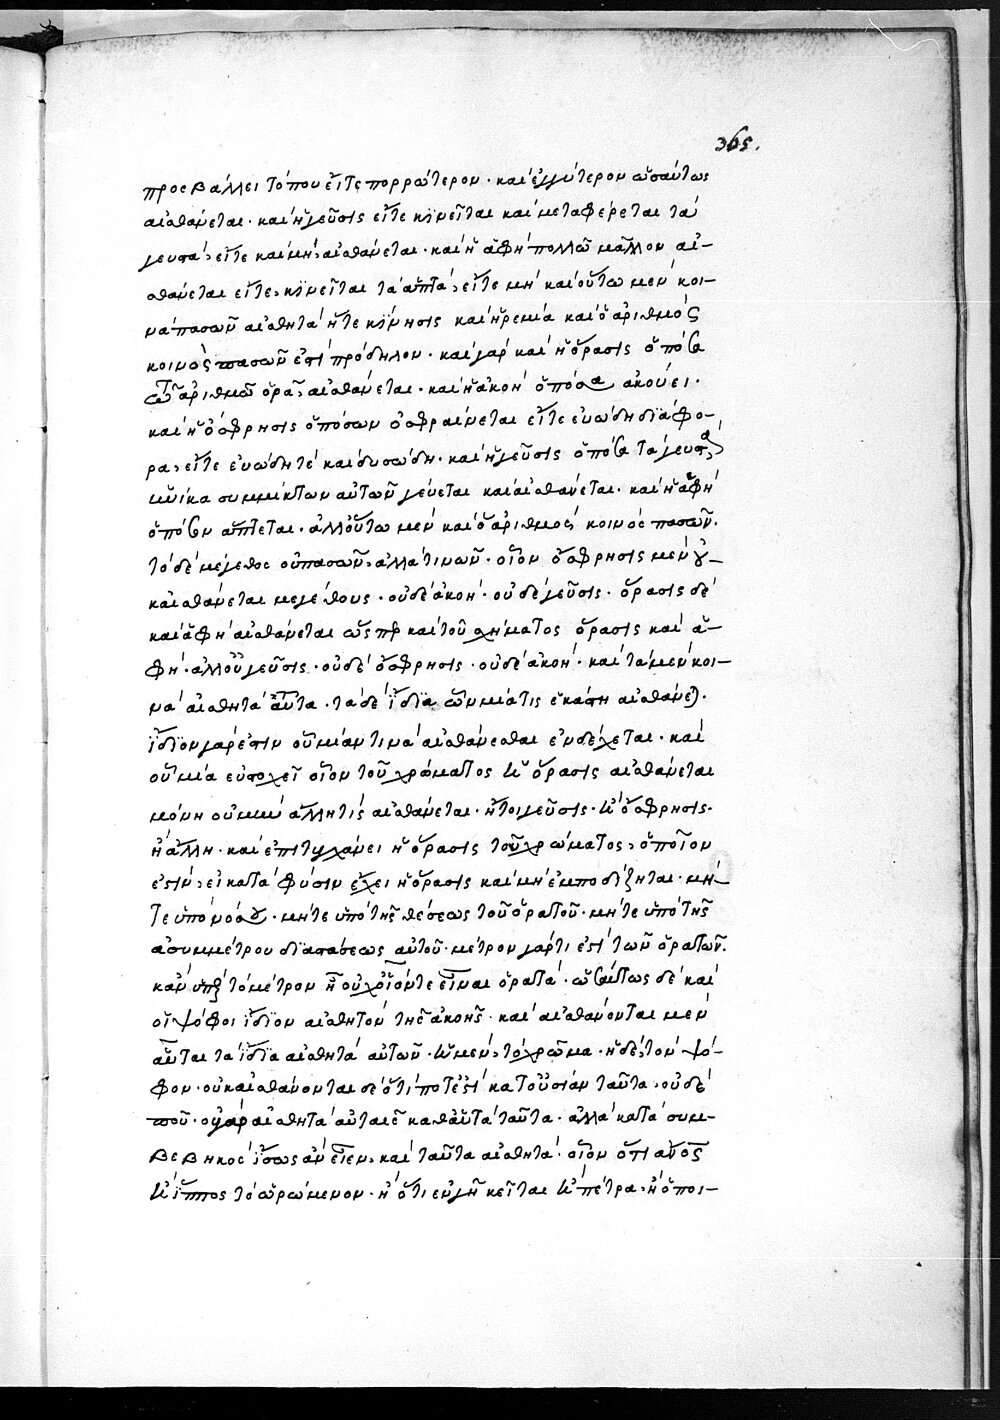 365.
προσβάλλει τόπου εἴτε πορρώτερον· καὶ ἐγγύτερον ὡσαύτως
αἰσθάνεται· καὶ ἡ γεῦσις εἴτε κϊνεῖται καὶ μεταφέρεται τὰ
γευστὰ, εἴτε καὶ μὴ, αἰσθάνεται· καὶ ἡ ἁφὴ πολλῶ μᾶλλον αἰ-
σθάνεται εἴτε κϊνεῖται τὰ ἁπτὰ, εἴτε μή καὶ οὕτω μὲν κοι-
νὰ πασῶν αἰσθητὰ ἥτε κϊνησις καὶ ἠρεμία καὶ ὁ ἀριθμὸς
κοινὸς πασῶν ἐστὶ πρόδηλον· καὶ γὰρ καὶ ἡ ὅρασις ὁπόσα
τῶ ἀριθμῶ ὁρᾶ, αἰσθάνεται· καὶ ἡ ἀκοὴ ὁπόσα ἀκούει·
καὶ ἡ ὄσφρησις ὁπόσων ὀσφραίνεται εἴτε εὐώδη διάφο-
ρα, εἴτε εὐώδη τὲ καὶ δυσώδη· καὶ ἡ γεῦσις ὁπόσα τὰ γευστὰ,
ἡνίκα συμμίκτων αὐτῶν γεύεται καὶ αἰσθάνεται· καὶ ἡ ἁφὴ
ὁπόσων ἅπτεται· ἀλλ' οὕτω μὲν καὶ ὁ ἀριθμὸς κοινὸς πασῶν·
τὸ δὲ μέγεθος οὐ πασῶν, ἀλλὰ τινῶν· οἷον ὄσφρησις μὲν οὐ-
κ αἰσθάνεται μεγέθους· οὐδὲ ἀκοή· οὐδὲ γεῦσις· ὅρασις δὲ
καὶ ἁφὴ αἰσθάνεται ὥσπερ καὶ τοῦ σχήματος ὅρασις καὶ ἁ-
φή· ἀλλ' οὐ γεῦσις· οὐδὲ ὄσφρησις· οὐδὲ ἀκοή· καὶ τὰ μὲν κοι-
νὰ αἰσθητὰ ταῦτα· τὰ δὲ ἴδϊα, ὧν μία τις ἑκάστη αἰσθάνεται·
ἴδϊον γάρ ἐστιν οὗ μίαν τινὰ αἰσθάνεσθαι ἐνδέχεται· καὶ
οὗ μία εὐστοχεῖ οἷον τοῦ χρώματος ἡ ὅρασις αἰσθάνεται
μόνη οὐ μὴν ἄλλη τὶς αἰσθάνεται· ἤτοι γεῦσις· ἢ ὄσφρησις·
ἢ ἄλλη· καὶ ἐπιτυγχάνει ἡ ὅρασις τοῦ χρώματος, ὁποῖον
ἐστίν, εἰ κατὰ φύσιν ἔχει ἡ ὅρασις καὶ μὴ ἐμποδίζηται· μή-
τε ὑπὸ νόσου· μήτε ὑπὸ τῆς θέσεως τοῦ ὁρατοῦ· μήτε ὑπὸ τῆς
ἀσυμμέτρου διαστάσεως αὐτοῦ· μέτρον γάρ τι ἐστὶ τῶν ὁρατῶν·
κἂν ὑπὲρ τὸ μέτρον ᾖ οὐχ οἷόν τε εἶναι ὁρατά· ὡσαύτως δὲ καὶ
οἱ ψόφοι ἴδϊον αἰσθητὸν τῆς ἀκοῆς· καὶ αἰσθάνονται μὲν
αὗται τὰ ἴδϊα αἰσθητὰ αὐτῶν· ἡ μὲν, τὸ χρῶμα· ἡ δὲ, τὸν ψό-
φον· οὐκ αἰσθάνονται δὲ ὅτί ποτέ ἐστι κατ' οὐσίαν ταῦτα, οὐδὲ
ποῦ· οὐ γὰρ αἰσθητὰ αὐταῖς καθ' αὑτὰ ταῦτα· ἀλλὰ κατὰ συμ-
βεβηκὸς ἴσως ἂν εἶεν, καὶ ταῦτα αἰσθητά· οἷον ὅτι ἄνθρωπος
ἢ ἵππος τὸ ὁρώμενον· ἢ ὅτι ἐν γῆ κεῖται ἢ πέτρα· ἢ ὅποι-